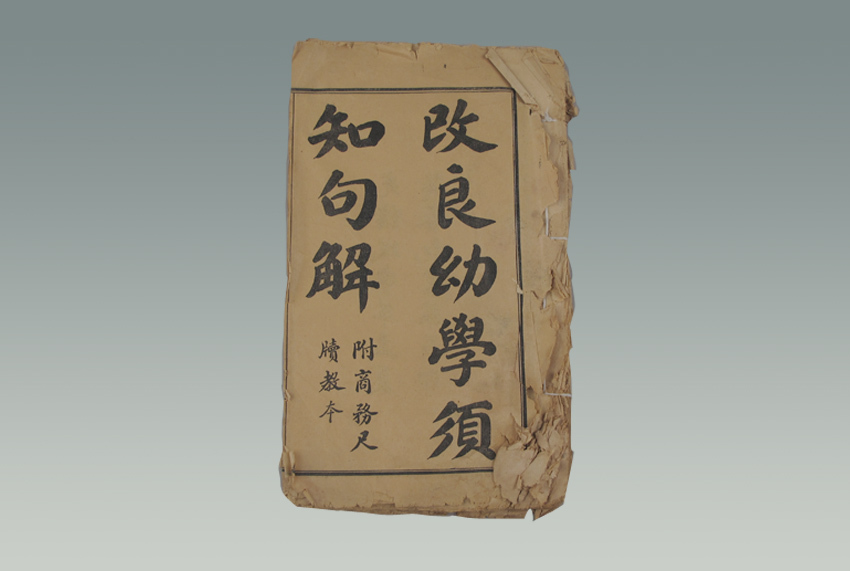 改良幼學須
知句解
附商務尺
牘教本